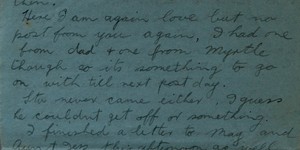 them.
Here I am again love but no
post from you again, I had one
from dad & one from Myrtle
though so its something to go
on with till next post day.
never came either. I guess
he couldnt get off or something.
I finished a letter to Mag and
this afternoon as well